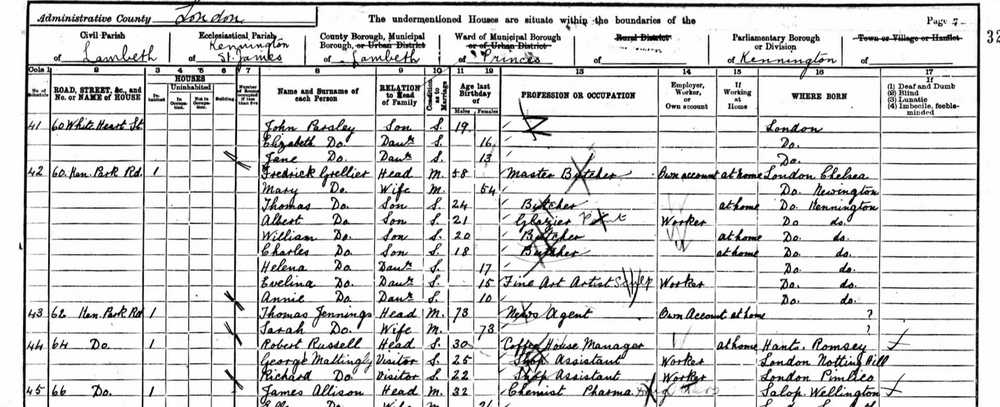 Administrative County London The undermentioned Houses are situate within the boundaries of the Page 7
Civil Parish Ecclesiastical Parish County Borough, Municipal Borough, or Urban District Ward of Municipal Borough or of Urban District Rural District Parliamentary Borough or Division Town or Village or Hamlet 32
of Lambeth of Kennington St. James of Lambeth of Princes of of Kennington of
Cols 1 2 3 4 5 6 7 8 9 10 11 12 13 14 15 16 17
No. of Schedule ROAD, STREET, &c., and No. or NAME of HOUSE HOUSES Inhabited Uninhabited In Occupation Not in Occupation Building Name and Surname of each Person RELATION to Head of Family Condition as to Marriage Age last Birthday of Males Females PROFESSION OR OCCUPATION Employer, Worker, or Own account If Working at Home WHERE BORN If (1) Deaf and Dumb (2) Blind (3) Lunatic (4) Imbecile, feeble-minded
41 60 White Heart St John Parsley Son S. 19 London
Elizabeth Do. Daur S. 16 Do.
Jane Do. Daur S. 13 Do.
42 60 Ken. Park Rd. 1 Fredrick Grellier Head M. 58 Master Butcher Own account at home London Chelsea
Mary Do. Wife M. 54 Do. Newington
Thomas Do. Son S. 24 Butcher at home Do. Kennington
Albert Do. Son S. 21 Glazier Worker Do do.
William Do. Son S. 20 Butcher at home Do. do.
Charles Do. Son S. 18 Butcher at home Do. do.
Helena Do. Daur S. 17 Do. do.
Evelina Do. Daur S. 15 Fine Art Artist Worker Do. do.
Annie Do. Daur S. 10 Do. do.
43 62 Ken. Park Rd 1 Thomas Jennings Head M. 73 News Agent Own Account at home ?
Sarah Do. Wife M. 73 ?
44 64 Do. 1 Robert Russell Head S. 30 Coffee House Manager at home Hants. Romsey
George Mattingly Visitor S. 25 Shop Assistant Worker London Notting Hill
Richard Do Visitor S. 22 Shop Assistant Worker London Pimlico
45 66 Do. 1 James Allison Head M. 32 Chemist Pharma Salop. Wellington